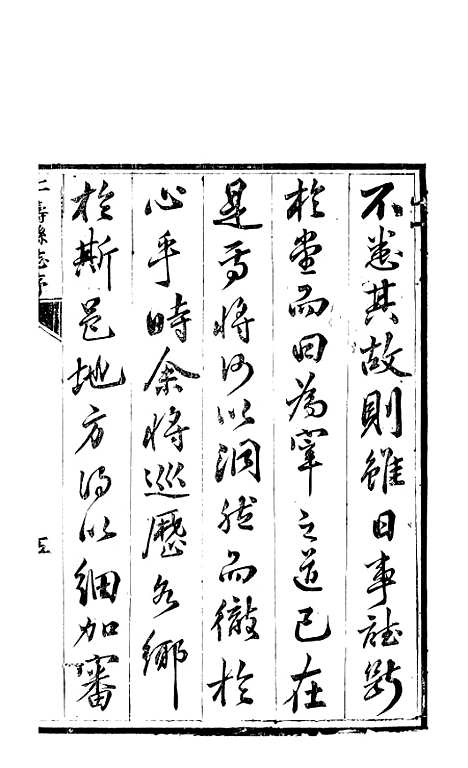 不悉其故則雖日事誌斷
於堂而曰為宰之道已在
是焉將何以洞然而徹於
心乎時余將巡歷各鄉
於斯邑地方得以細加審
仁壽縣志序
五